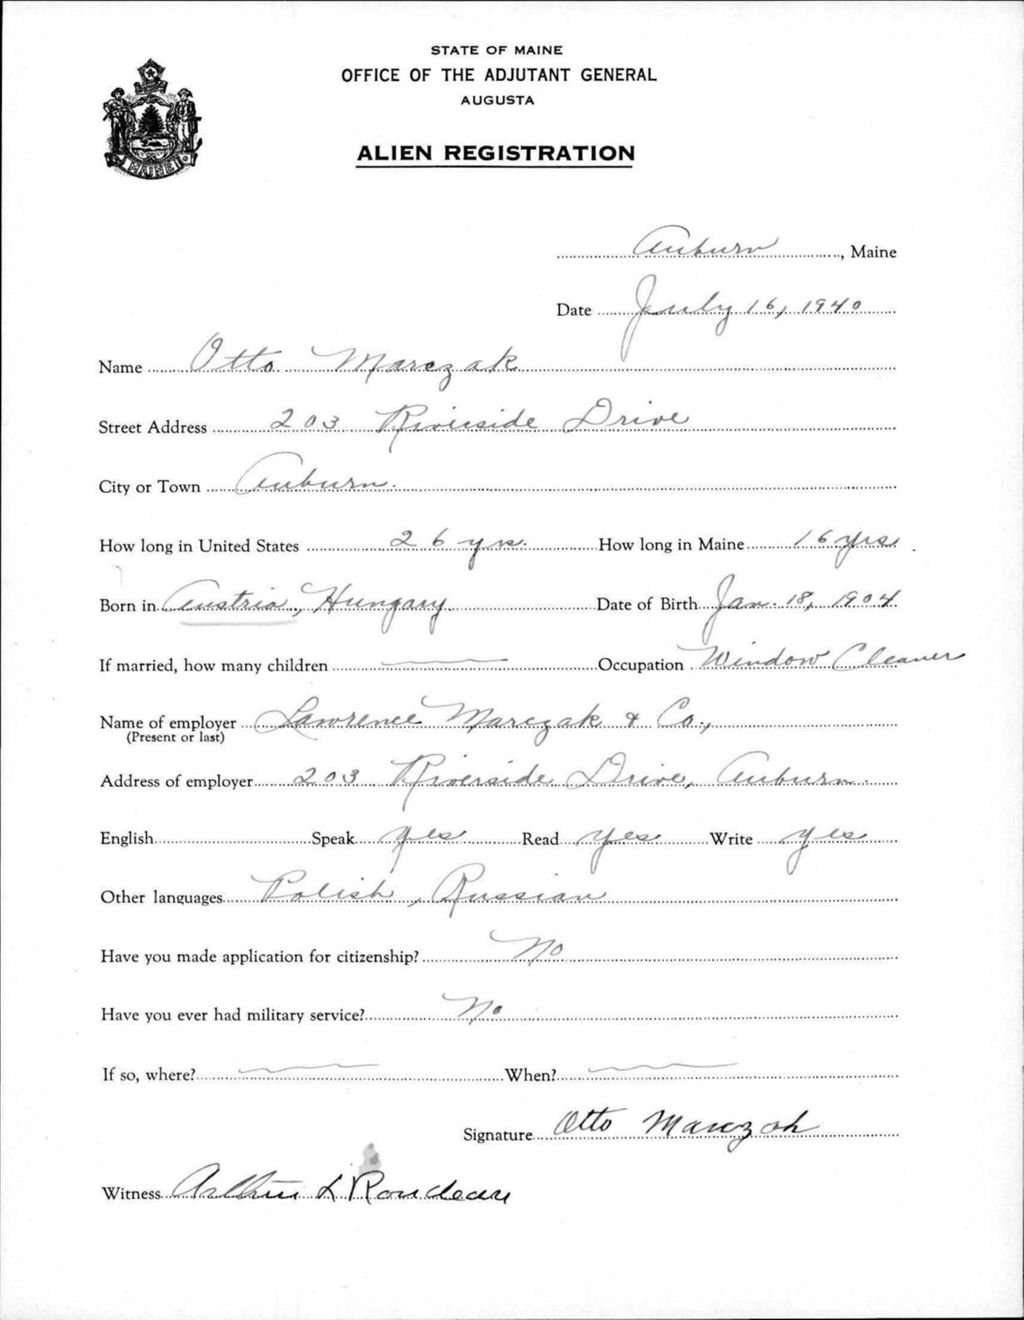 STATE OF MAINE
OFFICE OF THE ADJUTANT GENERAL
AUGUSTA
ALIEN REGISTRATION
MAINE
Auburn, Maine
Date July 16, 1940
Name Otto Marczak
Street Address 203 Riverside Drive
City or Town Auburn.
How long in United States 26 yrs. How long in Maine 16 yrs.
Born in Austria, Hungary Date of Birth Jan. 18, 1904
If married, how many children Occupation Window Cleaner
Name of employer Lawrence Marczak & Co.,
(Present or last)
Address of employer 203 Riverside Drive, Auburn
English Speak yes Read yes Write yes
Other languages Polish, Russian
Have you made application for citizenship? No
Have you ever had military service? No
If so, where? When?
Signature Otto Marczak
Witness Arthur L Rondeau